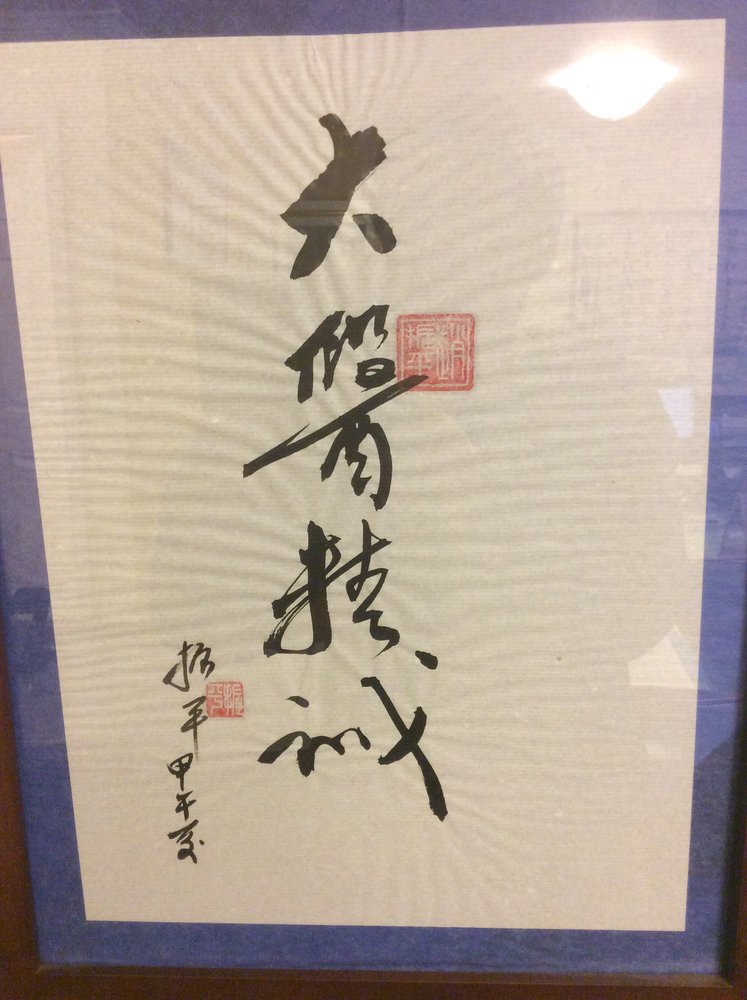 大醫精誠
振平 甲午夏